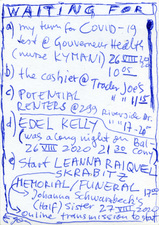 WAITING FOR
a) my turn for COVID-19
test @ Gouverneur Health
(nurse KYMANI) 26 VIII 2020
b) the cashier @ Trader Joe's 10 05
c) POTENTIAL " " 11 15
RENTERS @ 299 Riverside Dr.
d) EDEL KELLY " " 17-20
(was a long night on Bal-
26 VIII 2020 21 20 cony)
e) Start LEANNA RAIQUEL
SKRABITZ
MEMORIAL/FUNERAL 17 00
Johanna Schwarzbeck's
(half) Sister 27 VIII 2020
online transmission to start